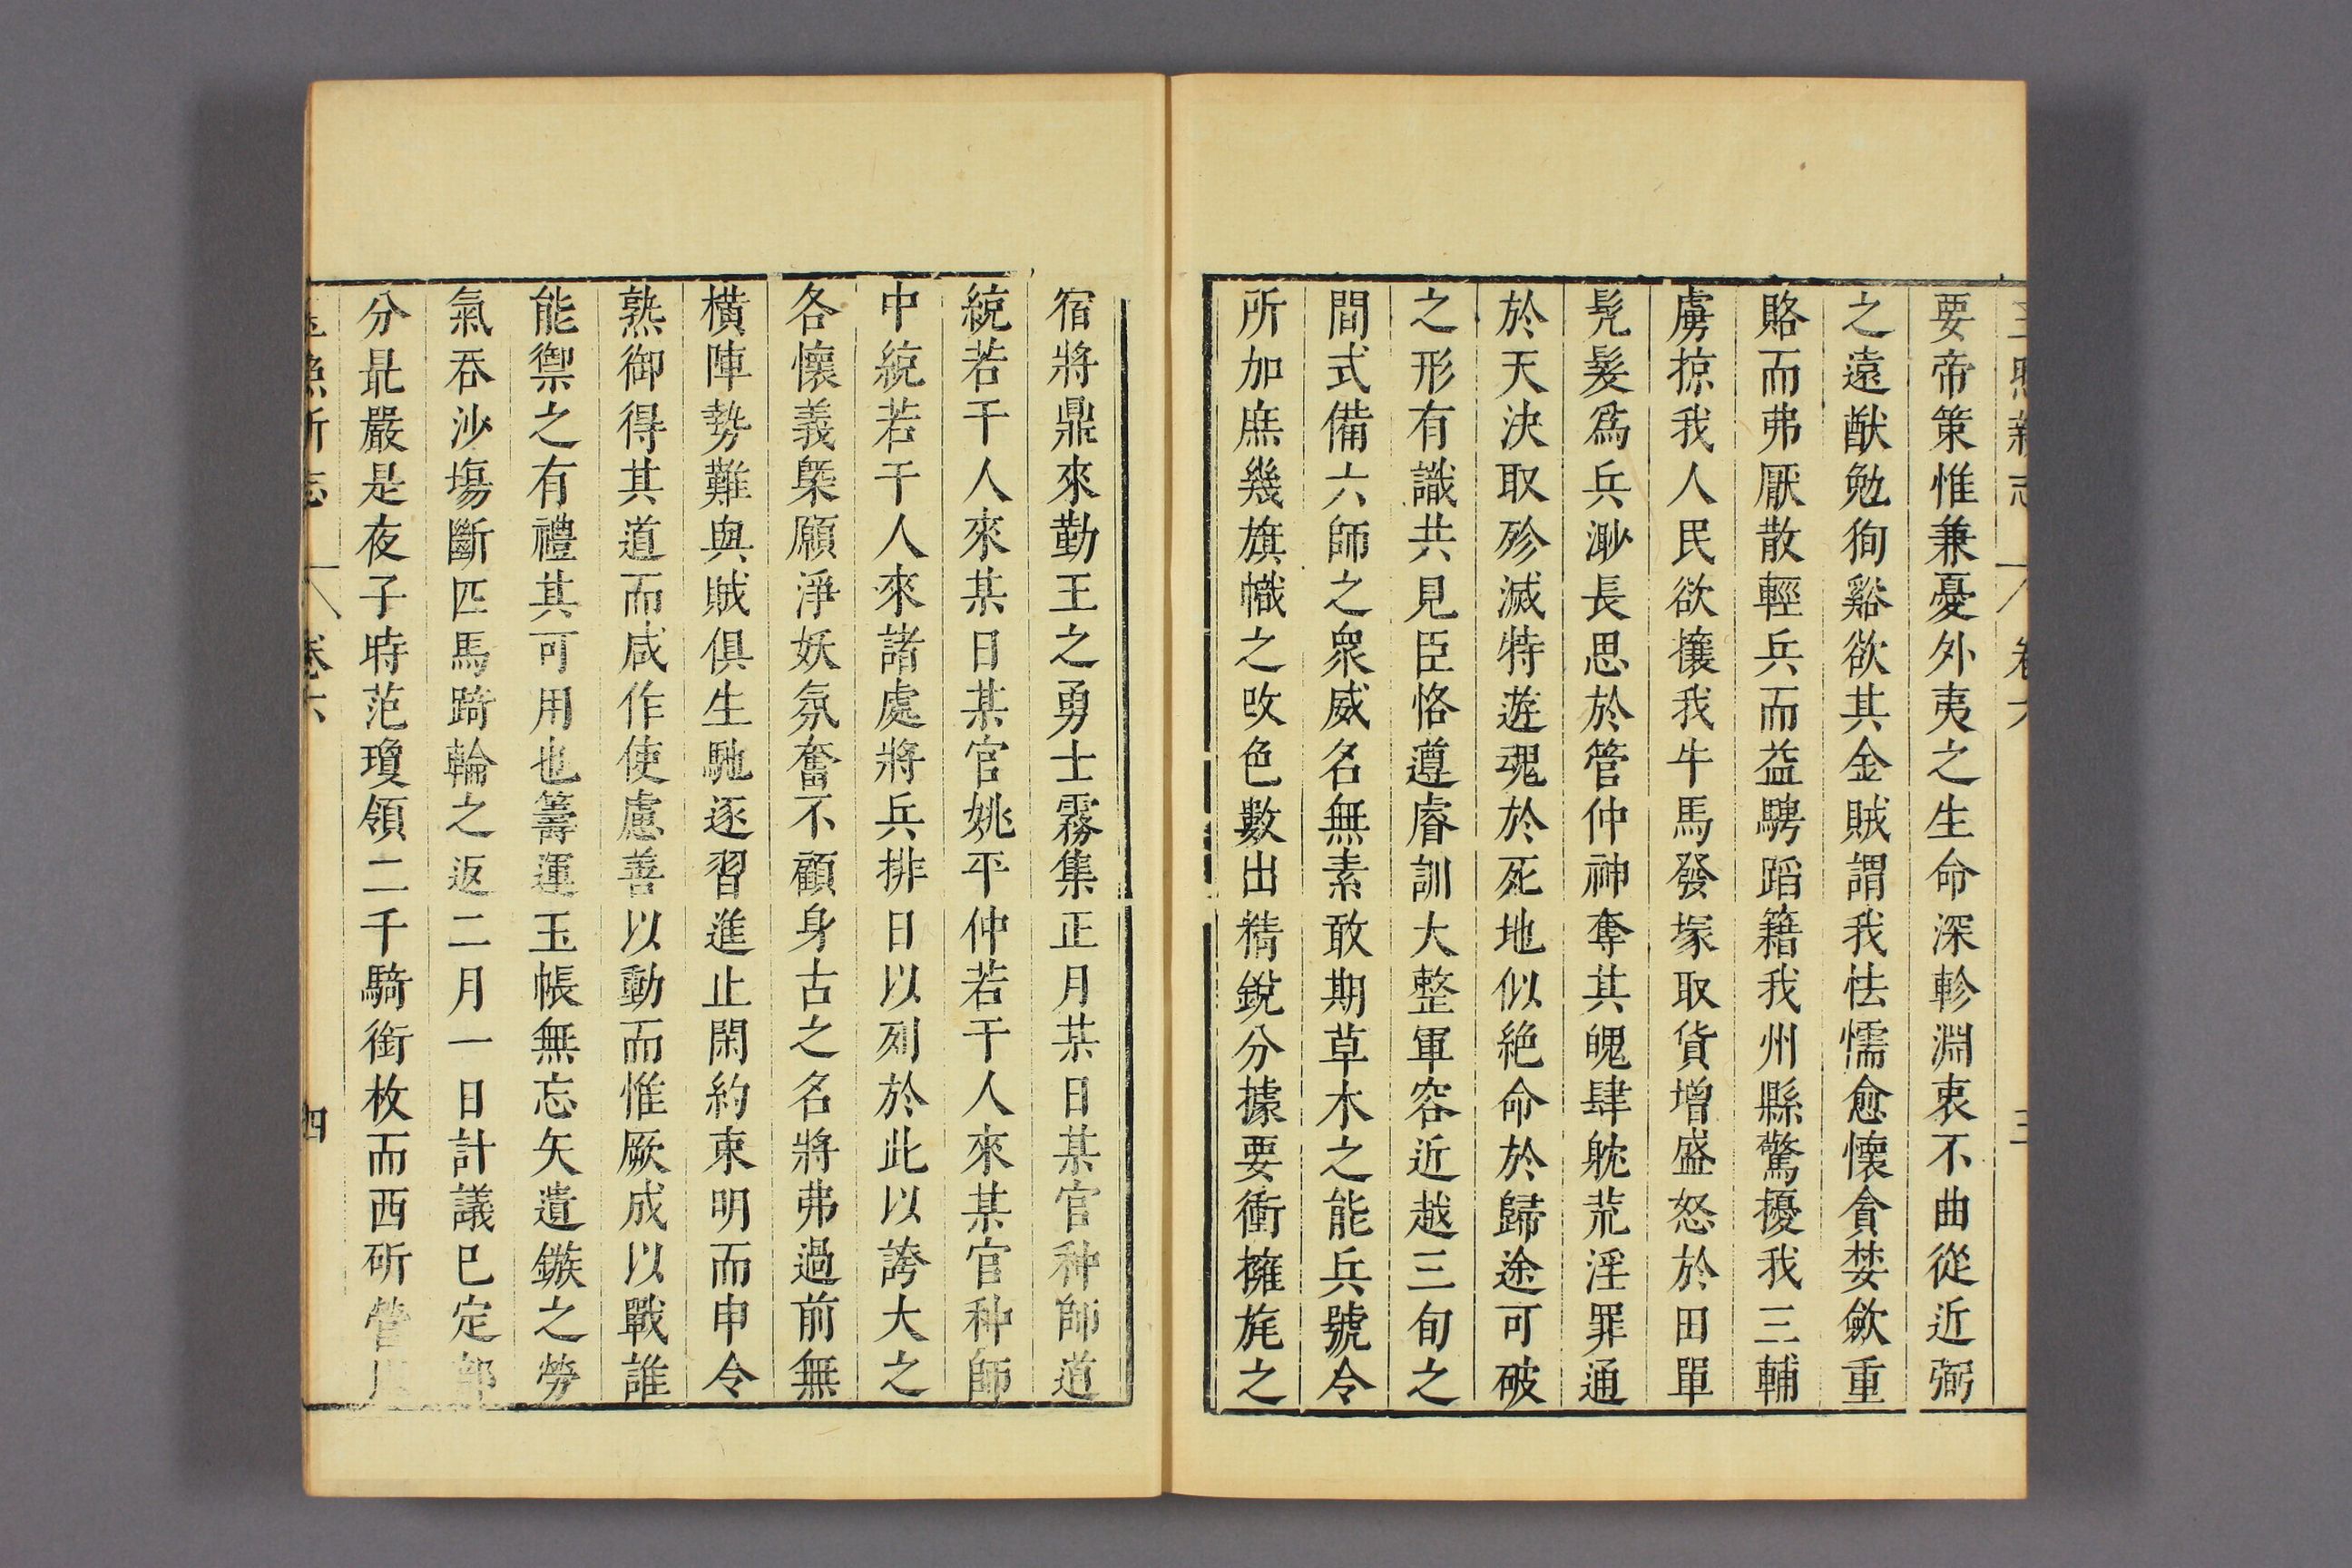 要帝策惟兼憂外夷之生命深軫淵衷不曲從近弼
之遠猷勉狥谿欲其金賊謂我怯懦愈懷貪婪歛重
賂而弗厭散輕兵而益騁蹈籍我州縣驚擾我三輔
虜掠我人民欲攘我牛馬發塚取貨增盛怒於田單
髠髮爲兵渺長思於管仲神奪其魄肆躭荒淫罪通
於天決取殄滅特遊魂於死地似絶命於歸途可破
之形有識共見臣恪遵睿訓大整軍容近越三旬之
間式備六師之衆威名無素敢期草木之能兵號令
所加庶幾旗幟之改色數出精銳分據要衝擁旄之
宿將鼎來勤王之勇士霧集正月某日某官种師道
統若干人來某日某官姚平仲若干人來某官种師
中統若干人來諸處將兵排日以列於此以誇大之
各懷義槩願淨妖氛奮不顧身古之名將弗過前無
橫陣勢難與賊俱生馳逐習進止閑約束明而申令
熟御得其道而咸作使慮善以動而惟厥成以戰誰
能禦之有禮其可用也籌運玉帳無忘矢遺鏃之勞
氣吞沙場斷匹馬踦輪之返二月一日計議巳定部
分最嚴是夜子時范瓊領二千騎銜枚而西斫營
卷六
四